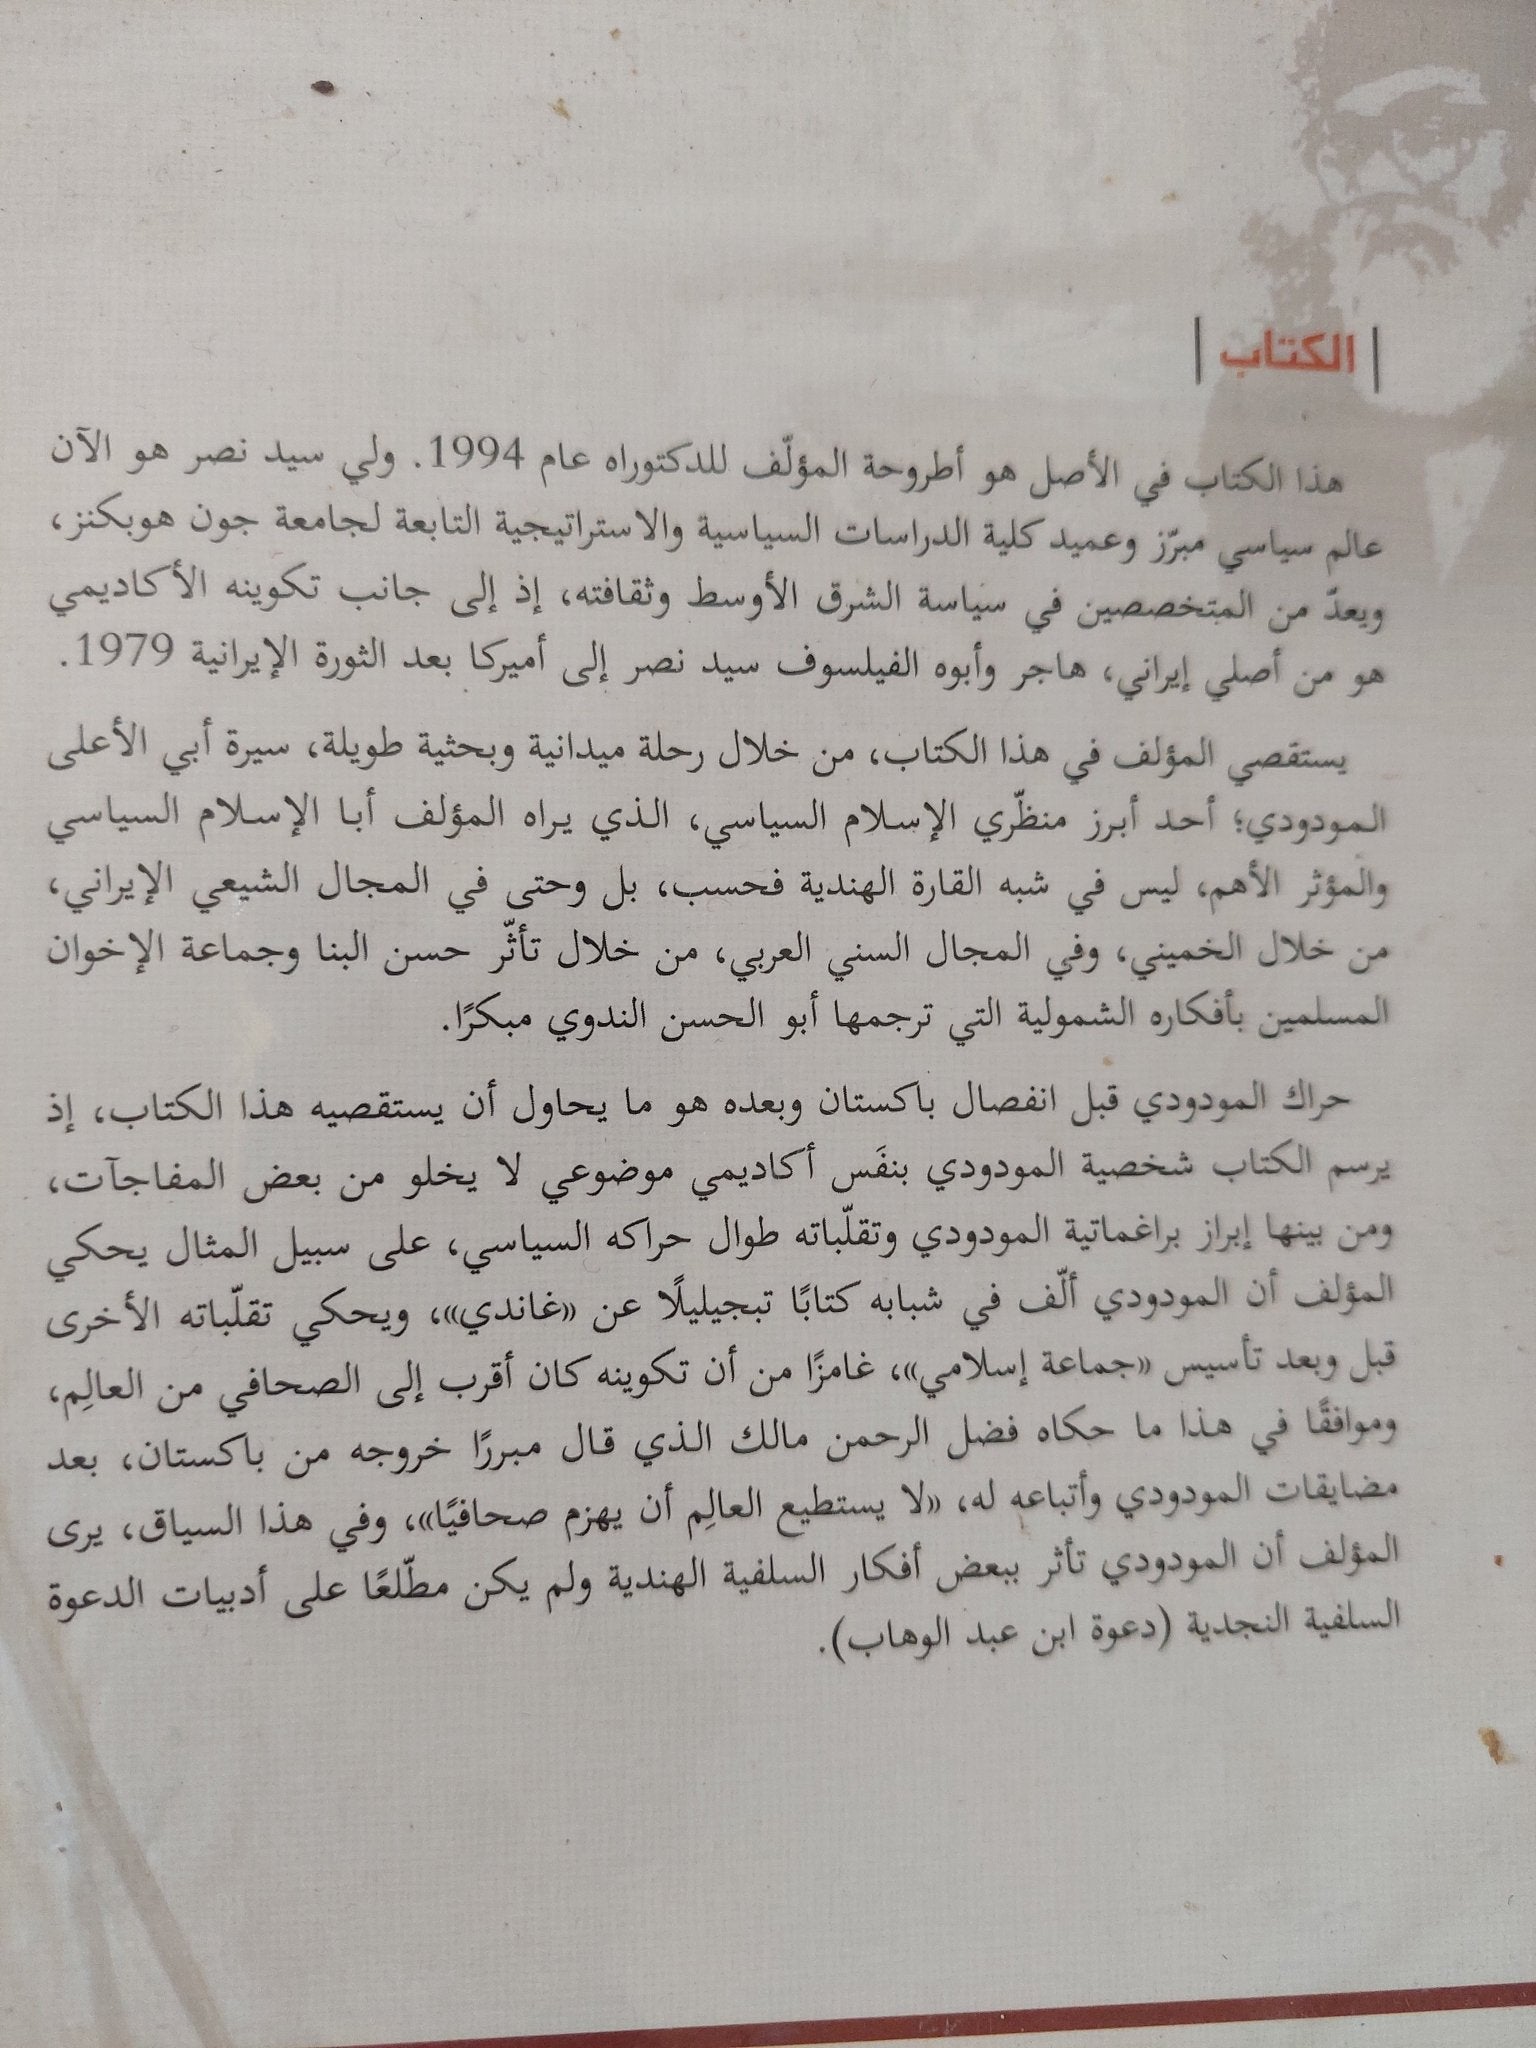 | الكتاب |
هذا الكتاب في الأصل هو أطروحة المؤلّف للدكتوراه عام 1994. ولي سيد نصر هو الآن
عالم سياسي مبرّز وعميد كلية الدراسات السياسية والاستراتيجية التابعة لجامعة جون هوبكنز،
ويعدّ من المتخصصين في سياسة الشرق الأوسط وثقافته، إذ إلى جانب تكوينه الأكاديمي
هو من أصلي إيراني، هاجر وأبوه الفيلسوف سيد نصر إلى أميركا بعد الثورة الإيرانية 1979.
يستقصي المؤلف في هذا الكتاب، من خلال رحلة ميدانية وبحثية طويلة، سيرة أبي الأعلى
المودودي؛ أحد أبرز منظّري الإسلام السياسي، الذي يراه المؤلف أبا الإسلام السياسي
والمؤثر الأهم، ليس في شبه القارة الهندية فحسب، بل وحتى في المجال الشيعي الإيراني،
من خلال الخميني، وفي المجال السني العربي، من خلال تأثّر حسن البنا وجماعة الإخوان
المسلمين بأفكاره الشمولية التي ترجمها أبو الحسن الندوي مبكرًا.
حراك المودودي قبل انفصال باكستان وبعده هو ما يحاول أن يستقصيه هذا الكتاب، إذ
يرسم الكتاب شخصية المودودي بنفَس أكاديمي موضوعي لا يخلو من بعض المفاجآت،
ومن بينها إبراز براغماتية المودودي وتقلّباته طوال حراكه السياسي، على سبيل المثال يحكي
المؤلف أن المودودي ألّف في شبابه كتابًا تبجيليلًا عن «غاندي»، ويحكي تقلّباته الأخرى
قبل وبعد تأسيس «جماعة إسلامي»، غامزًا من أن تكوينه كان أقرب إلى الصحافي من العالِم،
وموافقًا في هذا ما حكاه فضل الرحمن مالك الذي قال مبررًا خروجه من باكستان، بعد
مضايقات المودودي وأتباعه له، «لا يستطيع العالِم أن يهزم صحافيًا»، وفي هذا السياق، يرى
المؤلف أن المودودي تأثر ببعض أفكار السلفية الهندية ولم يكن مطّلعًا على أدبيات الدعوة
السلفية النجدية (دعوة ابن عبد الوهاب).